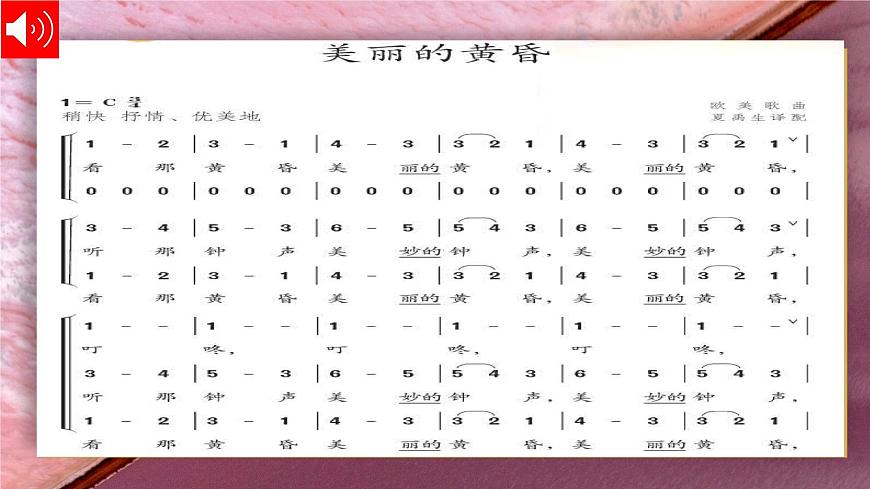 美丽的黄昏
1= C 3/4
欧美歌曲
稍快 抒情、优美地
夏禹生译配
1 - 2 | 3 - 1 | 4 - 3 | 3 2 1 | 4 - 3 | 3 2 1 ˅ |
看 那 黄 昏 美 丽的 黄 昏, 美 丽的 黄 昏,
0 0 0 | 0 0 0 | 0 0 0 | 0 0 0 | 0 0 0 | 0 0 0 |
3 - 4 | 5 - 3 | 6 - 5 | 5 4 3 | 6 - 5 | 5 4 3 ˅ |
听 那 钟 声 美 妙的 钟 声, 美 妙的 钟 声,
1 - 2 | 3 - 1 | 4 - 3 | 3 2 1 | 4 - 3 | 3 2 1 |
看 那 黄 昏 美 丽的 黄 昏, 美 丽的 黄 昏,
1 - - | 1 - - | 1 - - | 1 - - | 1 - - | 1 - - ˅ |
叮 咚, 叮 咚, 叮 咚,
3 - 4 | 5 - 3 | 6 - 5 | 5 4 3 | 6 - 5 | 5 4 3 |
听 那 钟 声 美 妙的 钟 声, 美 妙的 钟 声,
1 - 2 | 3 - 1 | 4 - 3 | 3 2 1 | 4 - 3 | 3 2 1 |
看 那 黄 昏 美 丽的 黄 昏, 美 丽的 黄 昏,